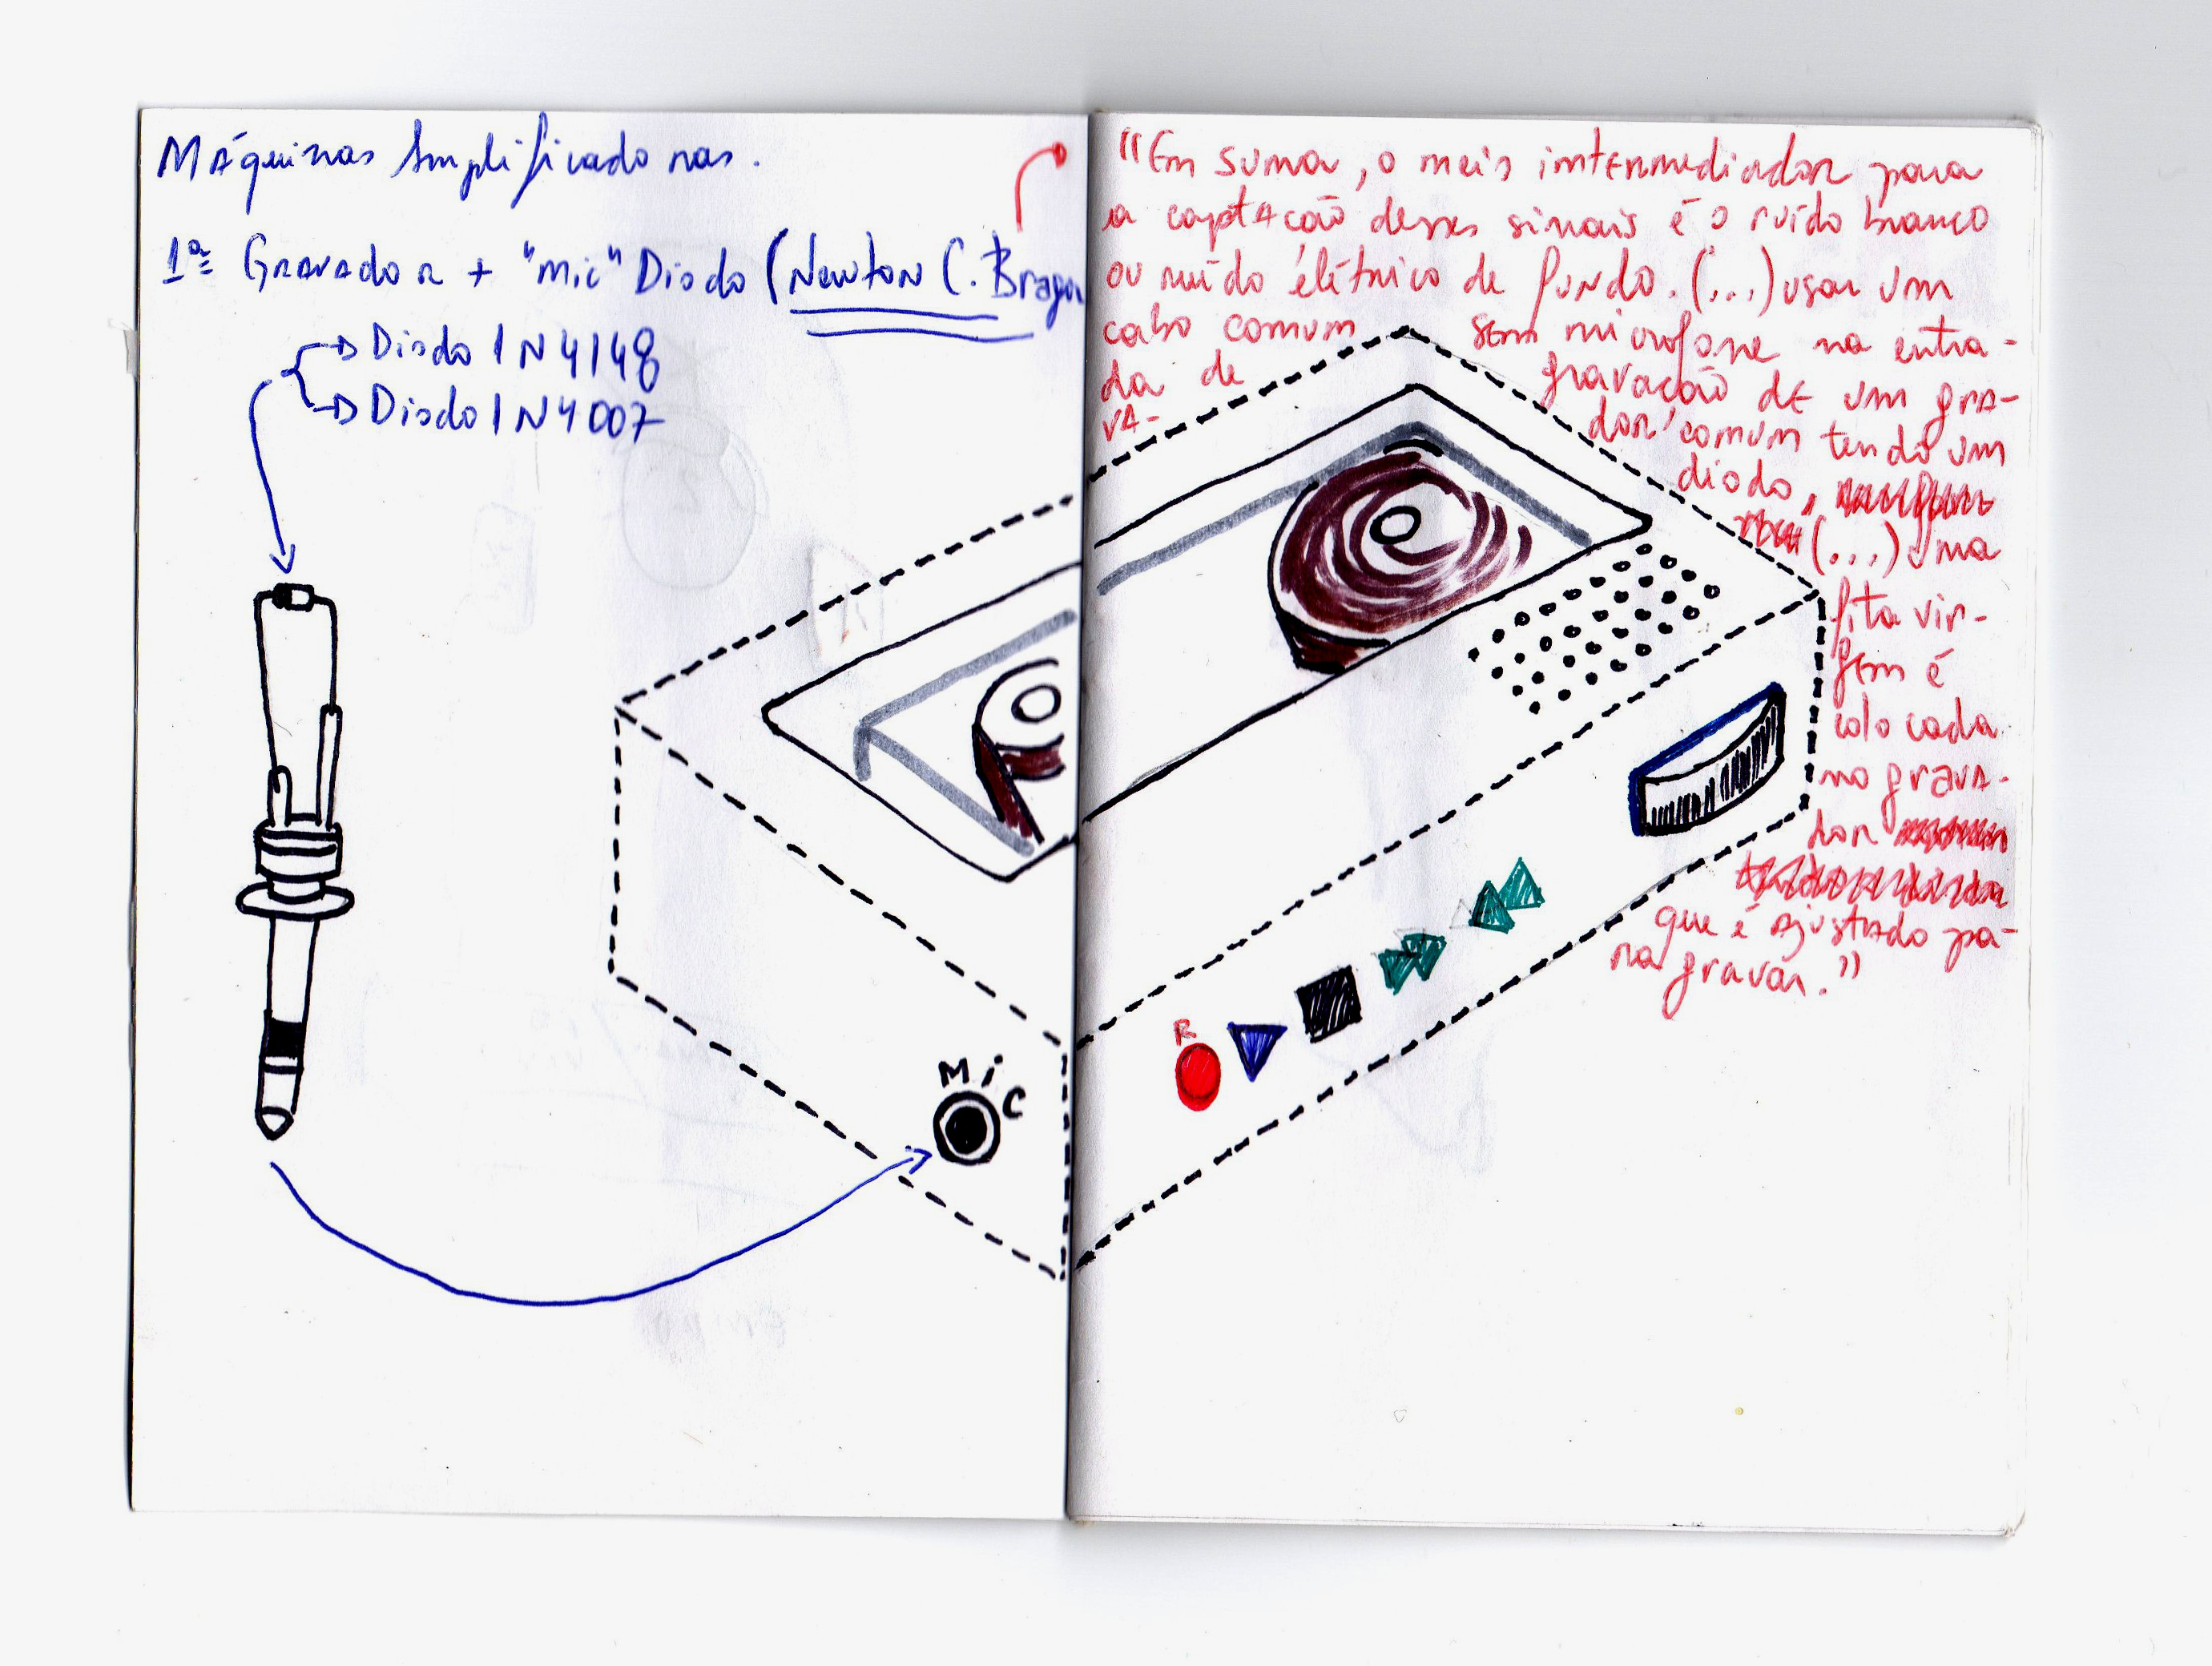 Máquinas Amplificadoras.
1ª Gravador + "mic" Diodo (Newton C. Braga
Diodo 1N4148
Diodo 1N4007
Mic
"Em suma, o meis intermediador para
a captação desses sinais é o ruído branco
ou ruído élétrico de fundo. (...) usar um
cabo comum sem microfone na entra-
da de gravação de um gra-
va- dor comum tendo um
diodo,
(...) uma
fita vir-
gem é
colocada
no grava-
dor
que é ajustado pa-
ra gravar."
R